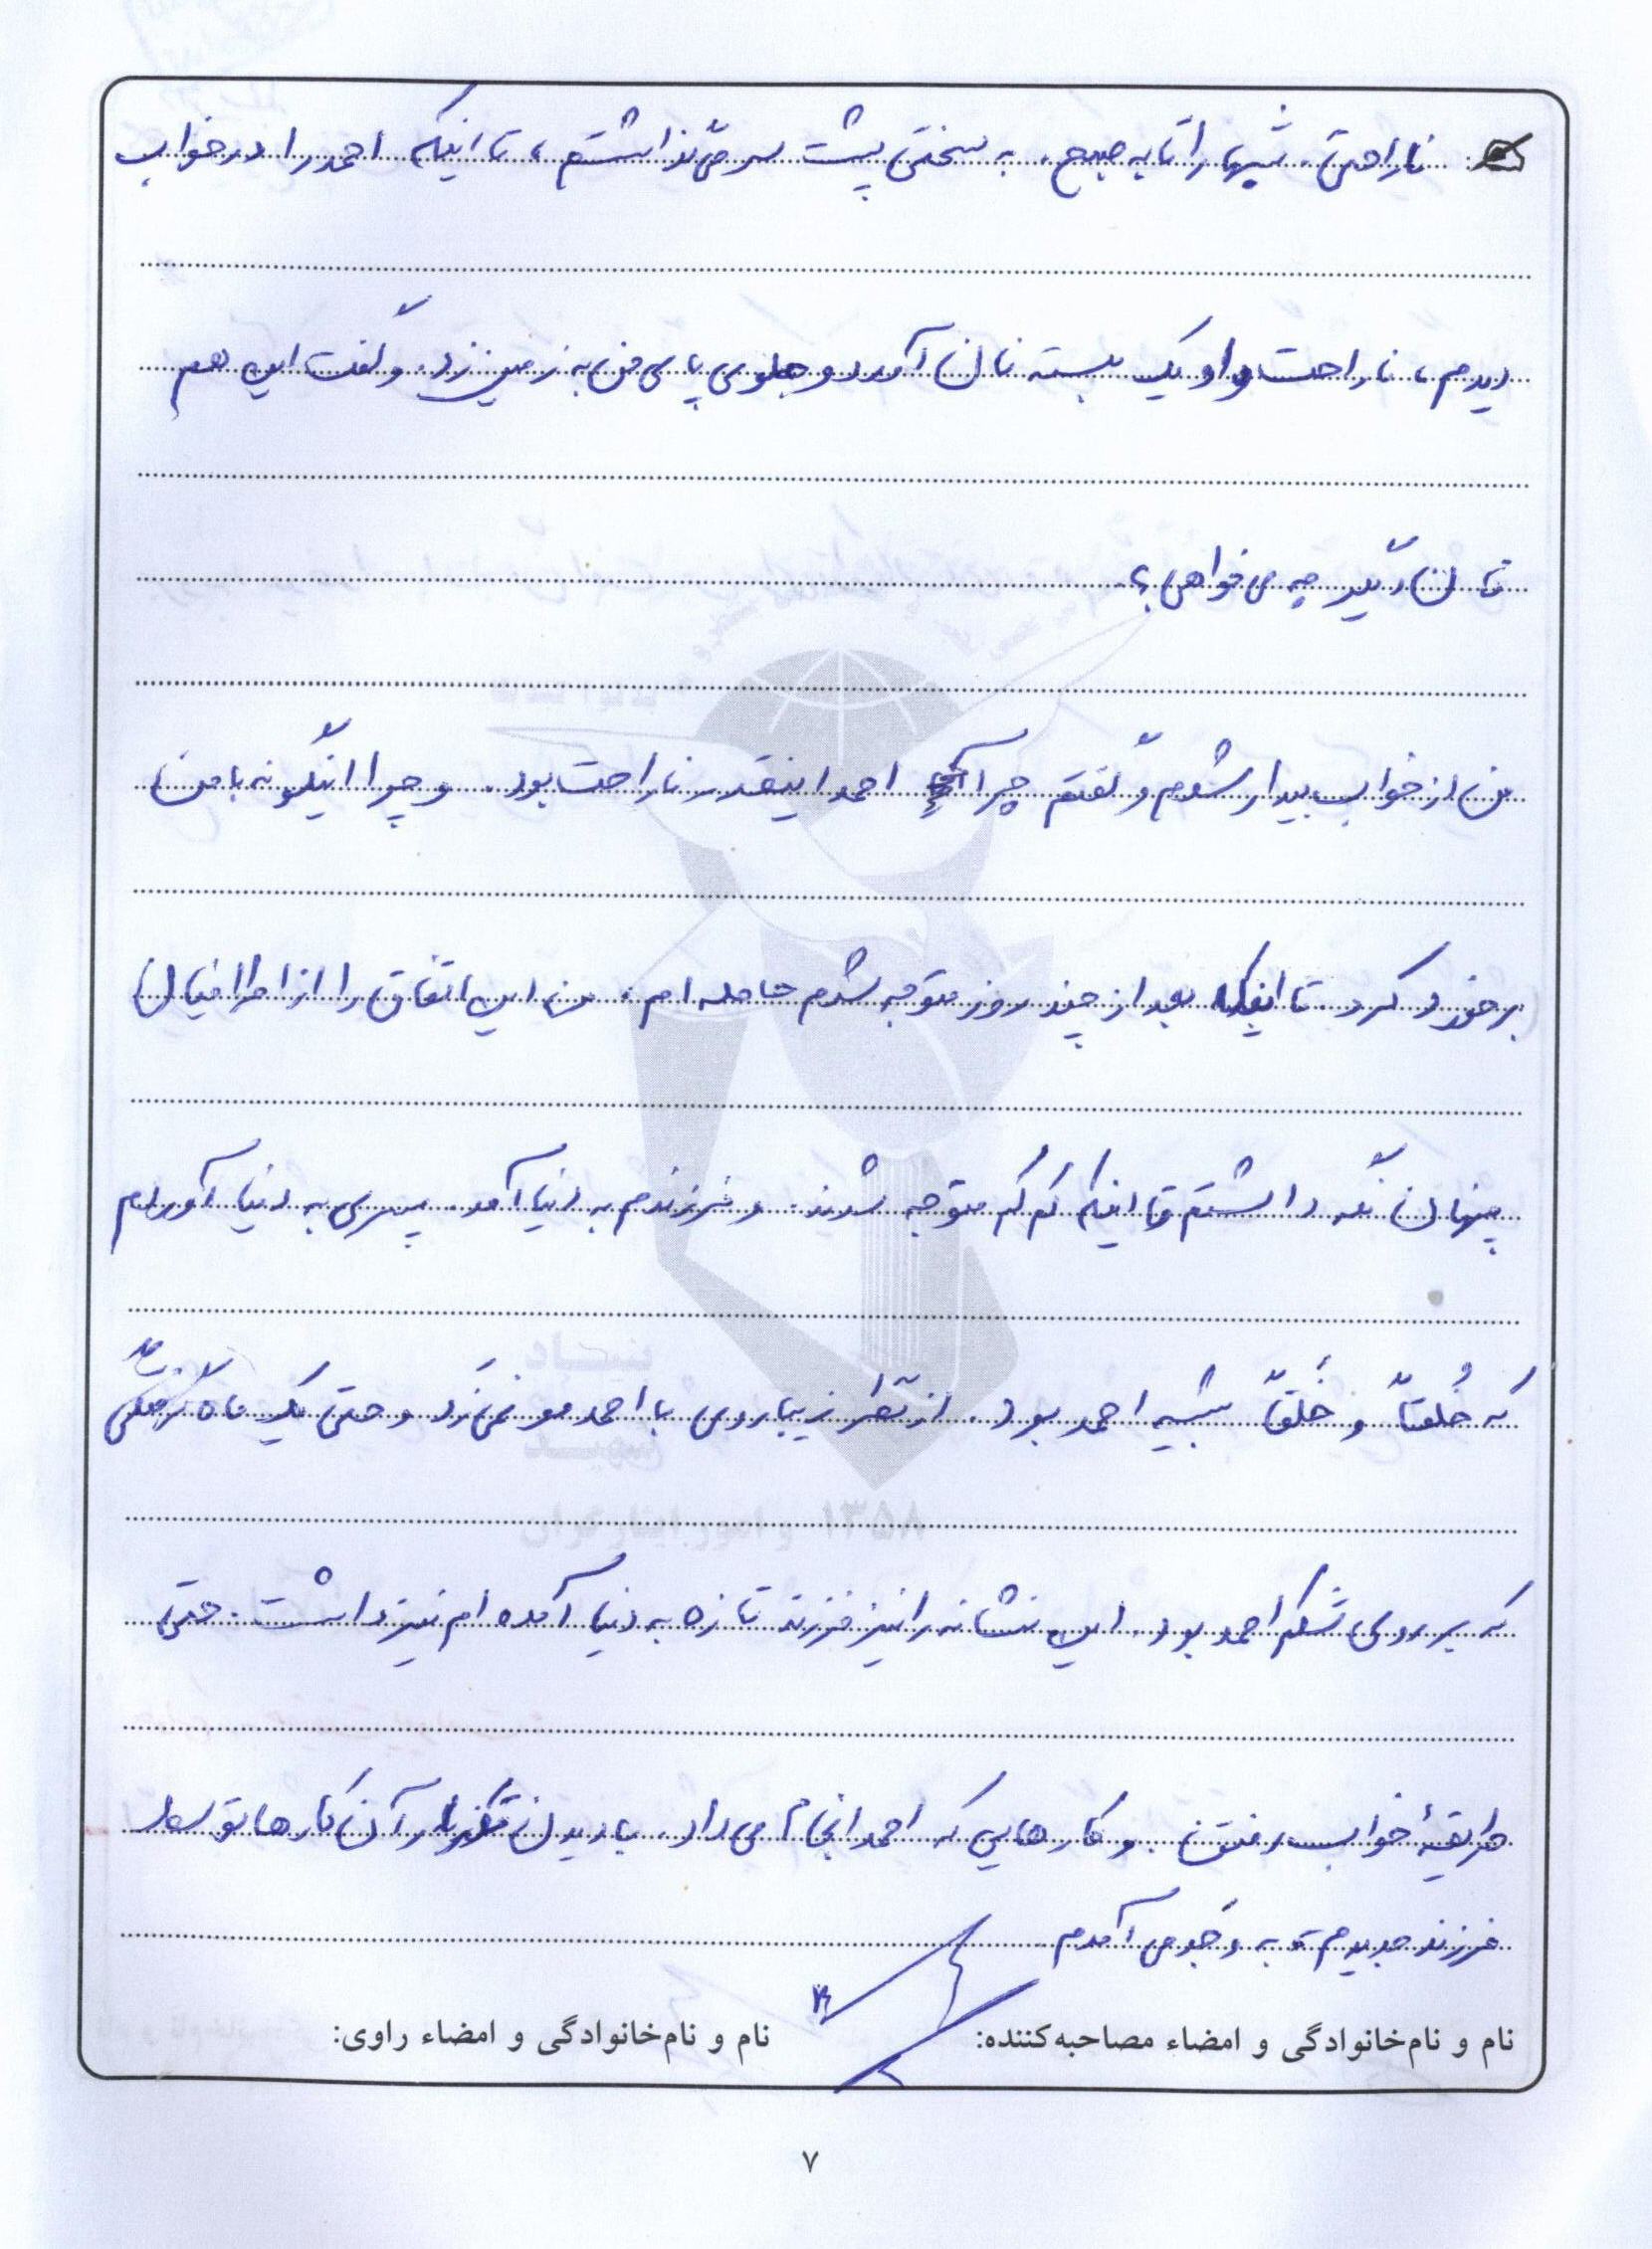 ناراحتی. شبها را تا به صبح. به سختی پشت سر می‌گذاشتم، تا اینکه احمد را در خواب
دیدم، ناراحت و او یک بسته نان آورد و جلوی پای من به زمین زد. و گفت این هم
نان دیگر چه می‌خواهی؟
من از خواب بیدار شدم و گفتم چرا احمد اینقدر ناراحت بود. و چرا اینگونه با من
برخورد کرد تا اینکه بعد از چند روز متوجه شدم حامله ام، من این اتفاق را از اطرافیان
پنهان نگه داشتم تا اینکه کم کم متوجه شدند. و فرزندم به دنیا آمد. پسری به دنیا آوردم
که خُلقاً و خَلقاً شبیه احمد بود. از نظر زیبا رویی با احمد مو نمی‌زد و حتی یک ماه گرفتگی
که بر روی شکم احمد بود. این نشانه را نیز فرزند تازه به دنیا آمده ام نیز داشت. حتی
طریقهٔ خواب رفتن. و کارهایی که احمد انجام می‌داد. با دیدن تکرار آن کارها توسط
فرزند جدیدم به وجد می‌آمدم
نام و نام‌خانوادگی و امضاء مصاحبه‌کننده: نام و نام‌خانوادگی و امضاء راوی:
۷